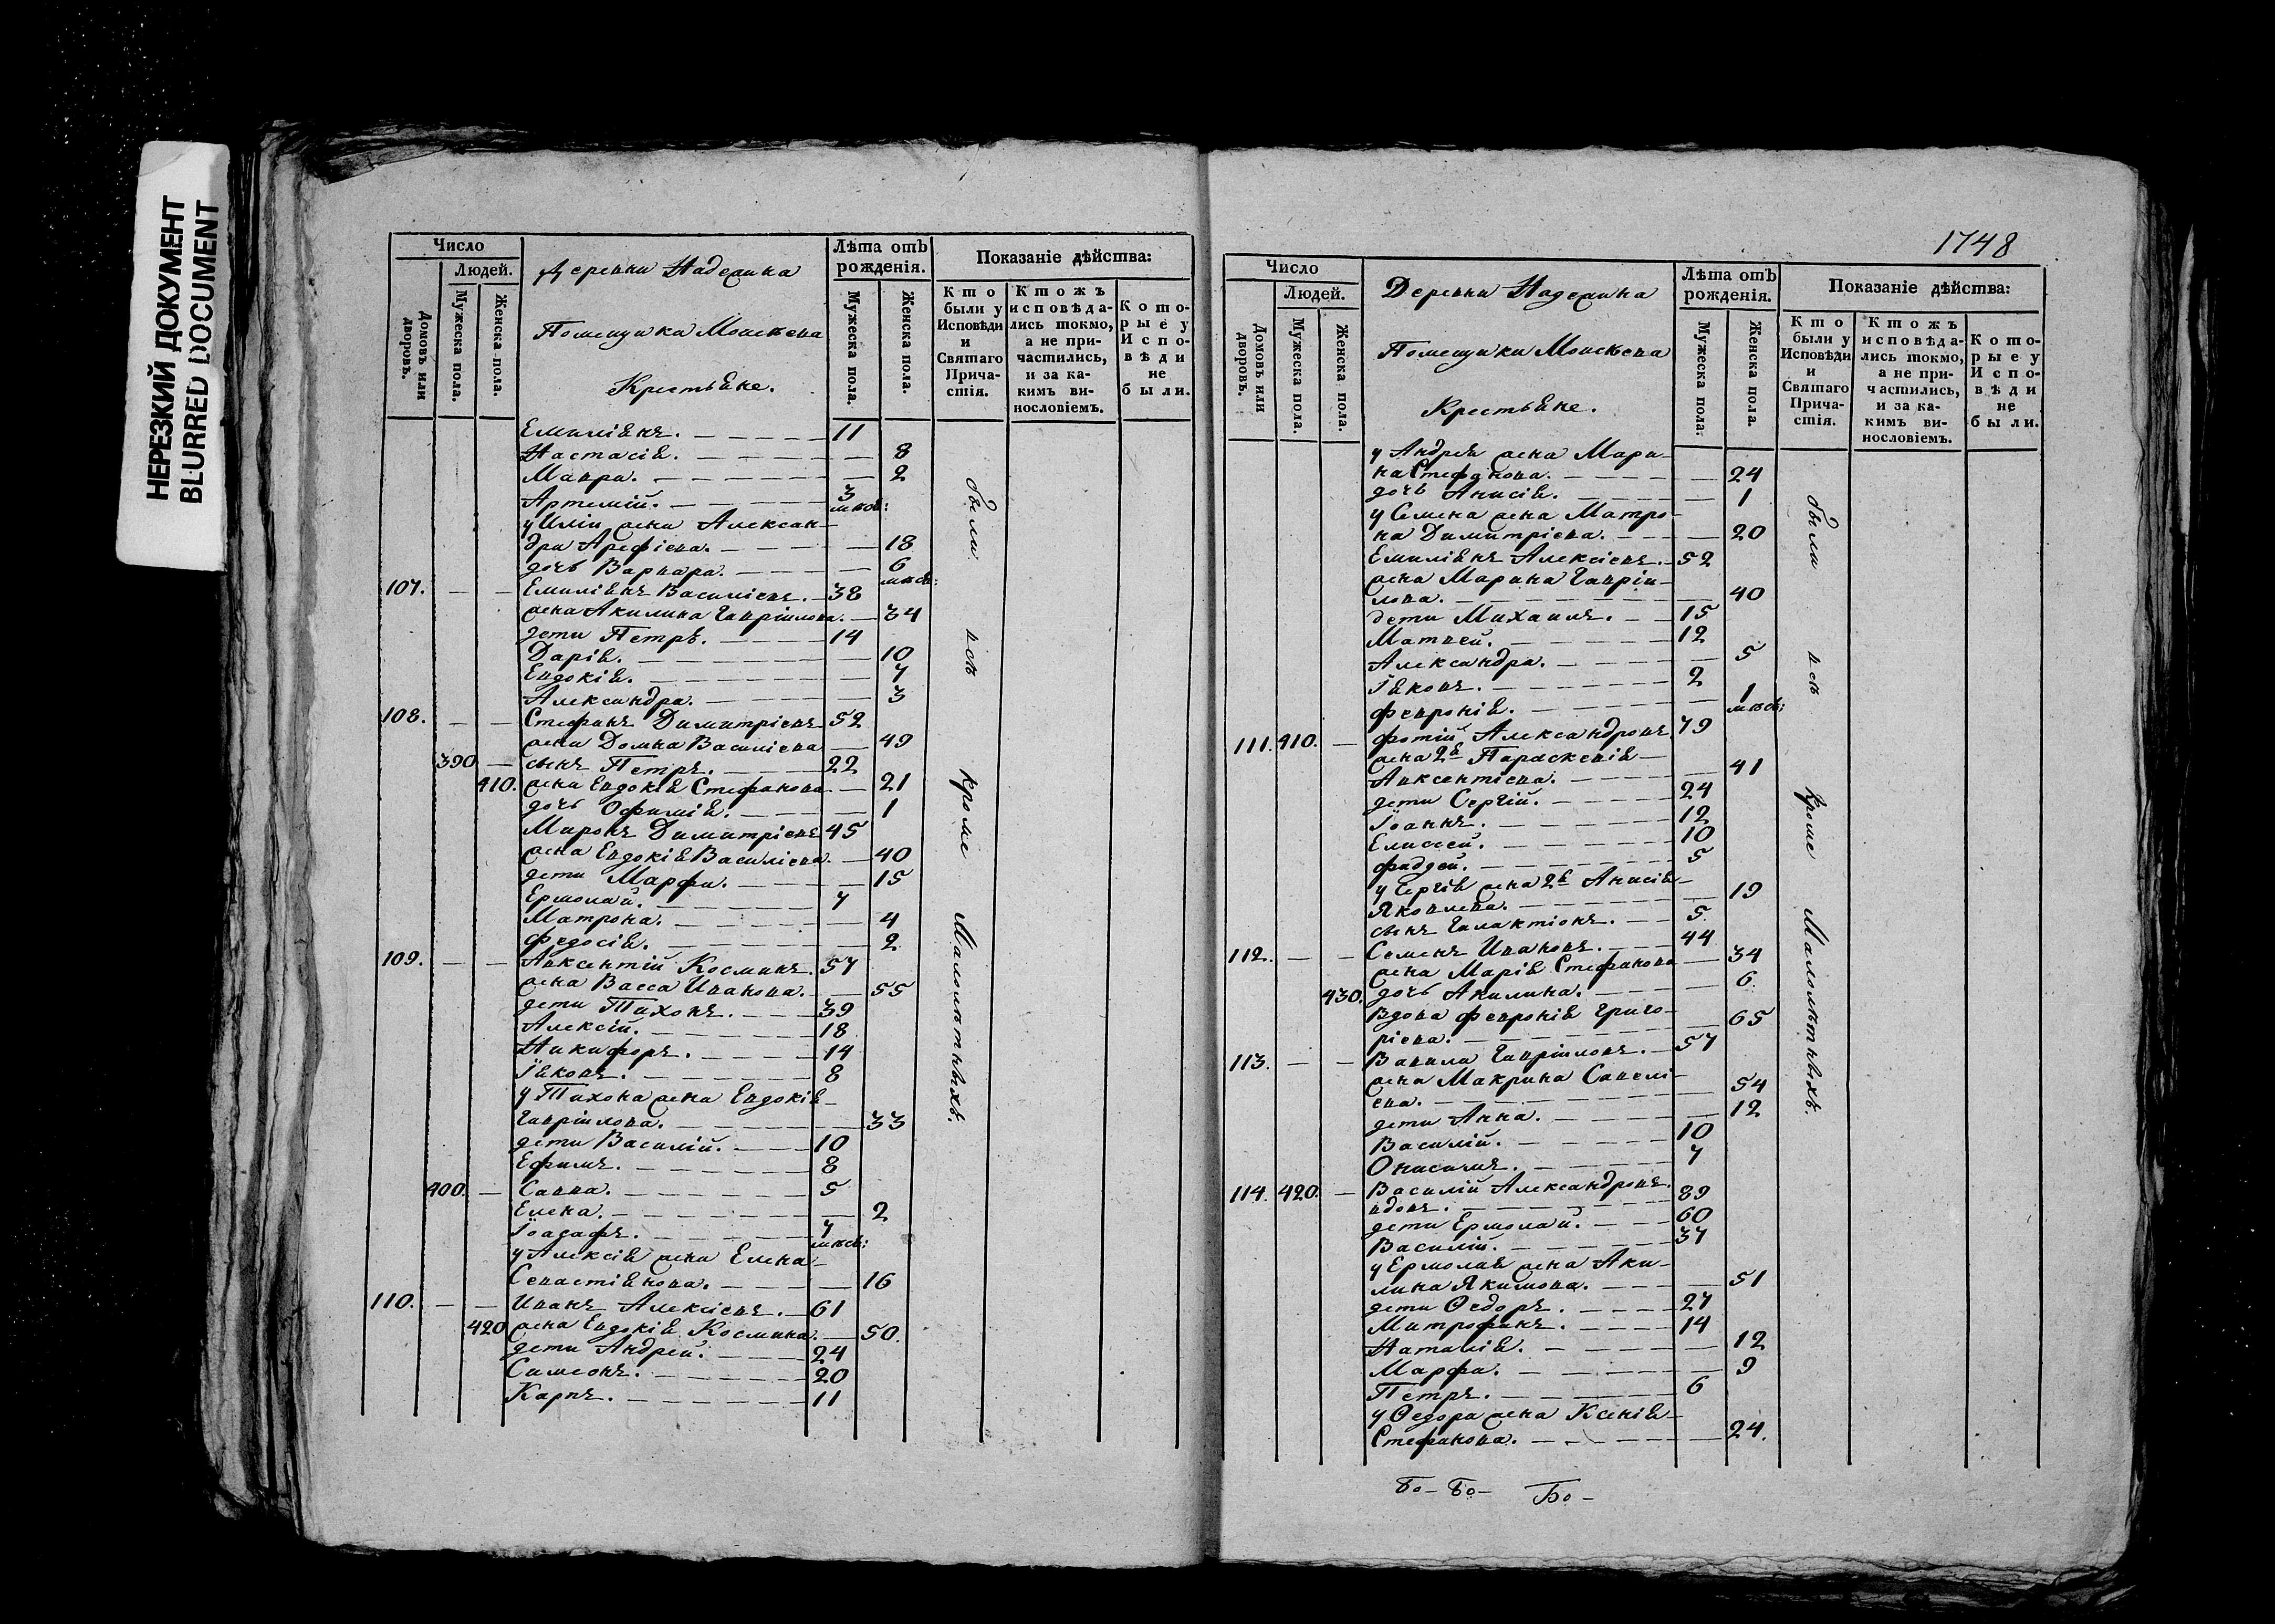 НЕРЕЗКИЙ ДОКУМЕНТ
BLURRED DOCUMENT
Число
Людей.
Домовъ или дворовъ.
Мужеска пола.
Женска пола.
Деревни
Помещика
Крестьяне.
Лѣта отъ рожденія.
Мужеска пола.
Женска пола.
Показаніе дѣйства:
Кто были у Исповѣди и Святаго Причастія.
Ктожъ исповѣдались токмо, а не причастились, и за какимъ винословіемъ.
Которые у Исповѣди не были.
Емиліянъ. 11
Настасія. 8
Мавра. 2
Артемій. 3 мѣсѣ:
у Иліи жена Алексан-
дра Арефіева. 18
дочь Варвара. 6 мѣсѣ:
107. Емиліянъ Василіевъ. 38
жена Акилина Гавріилова. 34
дети Петръ. 14
Дарія. 10
Евдокія. 7
Александра. 3
108. Стефанъ Димитріевъ 52
жена Домна Василіева 49
390 сынъ Петръ. 22
410. жена Евдокія Стефанова. 21
дочь Офимія. 1
Миронъ Димитріевъ 45
жена Евдокія Василіева. 40
дети Марфа. 15
Ермолай. 7
Матрона. 4
Федосія. 2
109. Авксентій Косминъ. 57
жена Васса Иванова. 55
дети Тихонъ. 39
Алексій. 18
Никифоръ. 14
Іяковъ. 8
у Тихона жена Евдокія
Гавріилова. 33
дети Василій. 10
Ефимъ. 8
400. Савва. 5
Елена. 2
Іоасафъ. 7 мѣсѣ:
у Алексія жена Елена
Севастіянова. 16
110. Иванъ Алексіевъ. 61
420 жена Евдокія Космина. 50.
дети Андрей. 24
Симеонъ. 20
Карпъ. 11
были всѣ кроме Малолѣтныхъ.
1748
Число
Людей.
Домовъ или дворовъ.
Мужеска пола.
Женска пола.
Деревни
Помещика
Крестьяне.
Лѣта отъ рожденія.
Мужеска пола.
Женска пола.
Показаніе дѣйства:
Кто были у Исповѣди и Святаго Причастія.
Ктожъ исповѣдались токмо, а не причастились, и за какимъ винословіемъ.
Которые у Исповѣди не были.
у Андрея жена Мари-
на Стефанова. 24
дочь Анисія. 1
у Семена жена Матро-
на Димитріева. 20
Емиліянъ Алексіевъ. 52
жена Марина Гавріи-
лова. 40
дети Михаилъ. 15
Матвей. 12
Александра. 5
Іяковъ. 2
Февронія. 1 мѣсѣ:
111. 410. Фотій Александровъ 79
жена 2я Параскевія
Авксентіева. 41
дети Сергій. 24
Іоаннъ. 12
Елисей. 10
Фаддей. 5
у Сергія жена 2я Анисія
Яковлева. 19
сынъ Галактіонъ. 5
112. Семенъ Ивановъ. 44
жена Марія Стефанова 34
430. дочь Акилина. 6.
Вдова Февронія Григо-
ріева. 65
113. Вавила Гавріиловъ. 57
жена Макрина Савелі-
ева. 54
дети Анна. 12
Василій. 10
Онисимъ. 7
114. 420. Василій Александровъ.
вдовъ. 89
дети Ермолай. 60
Василій. 37
у Ермолая жена Аки-
лина Якимова. 51
дети Ѳедоръ. 27
Митрофанъ. 14
Наталія. 12
Марфа. 9
Петръ. 6
у Ѳедора жена Ксенія
Стефанова. 24.
были всѣ кроме Малолѣтныхъ.